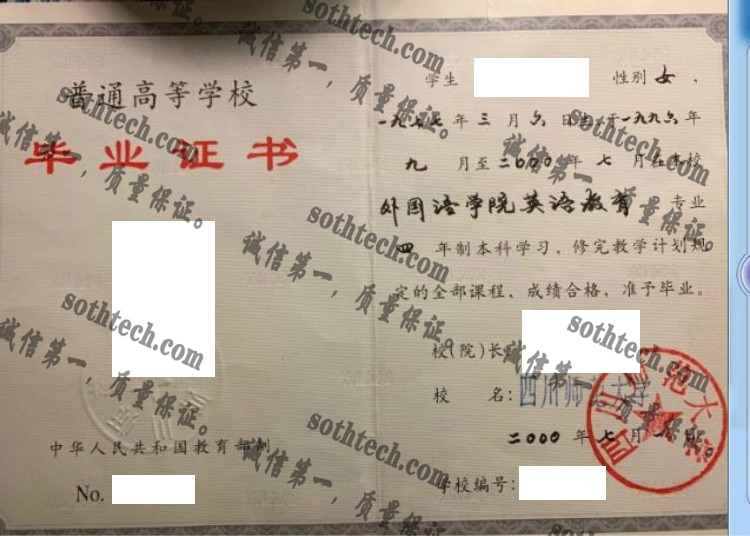 普通高等学校
毕业证书
中华人民共和国教育部制
No.
学生 性别 女 ，
一九七七年三月六日生，于一九九六年
九月至二000年七月在本校
外国语学院英语教育专业
四年制本科学习，修完教学计划规
定的全部课程，成绩合格，准予毕业。
校（院）长：
校 名：四川师范大学
二000年七月一日
学校编号：
sothtech.com
诚信第一，质量保证。
sothtech.com
诚信第一，质量保证。
sothtech.com
诚信第一，质量保证。
sothtech.com
诚信第一，质量保证。
sothtech.com
诚信第一，质量保证。
sothtech.com
诚信第一，质量保证。
sothtech.com
诚信第一，质量保证。
sothtech.com